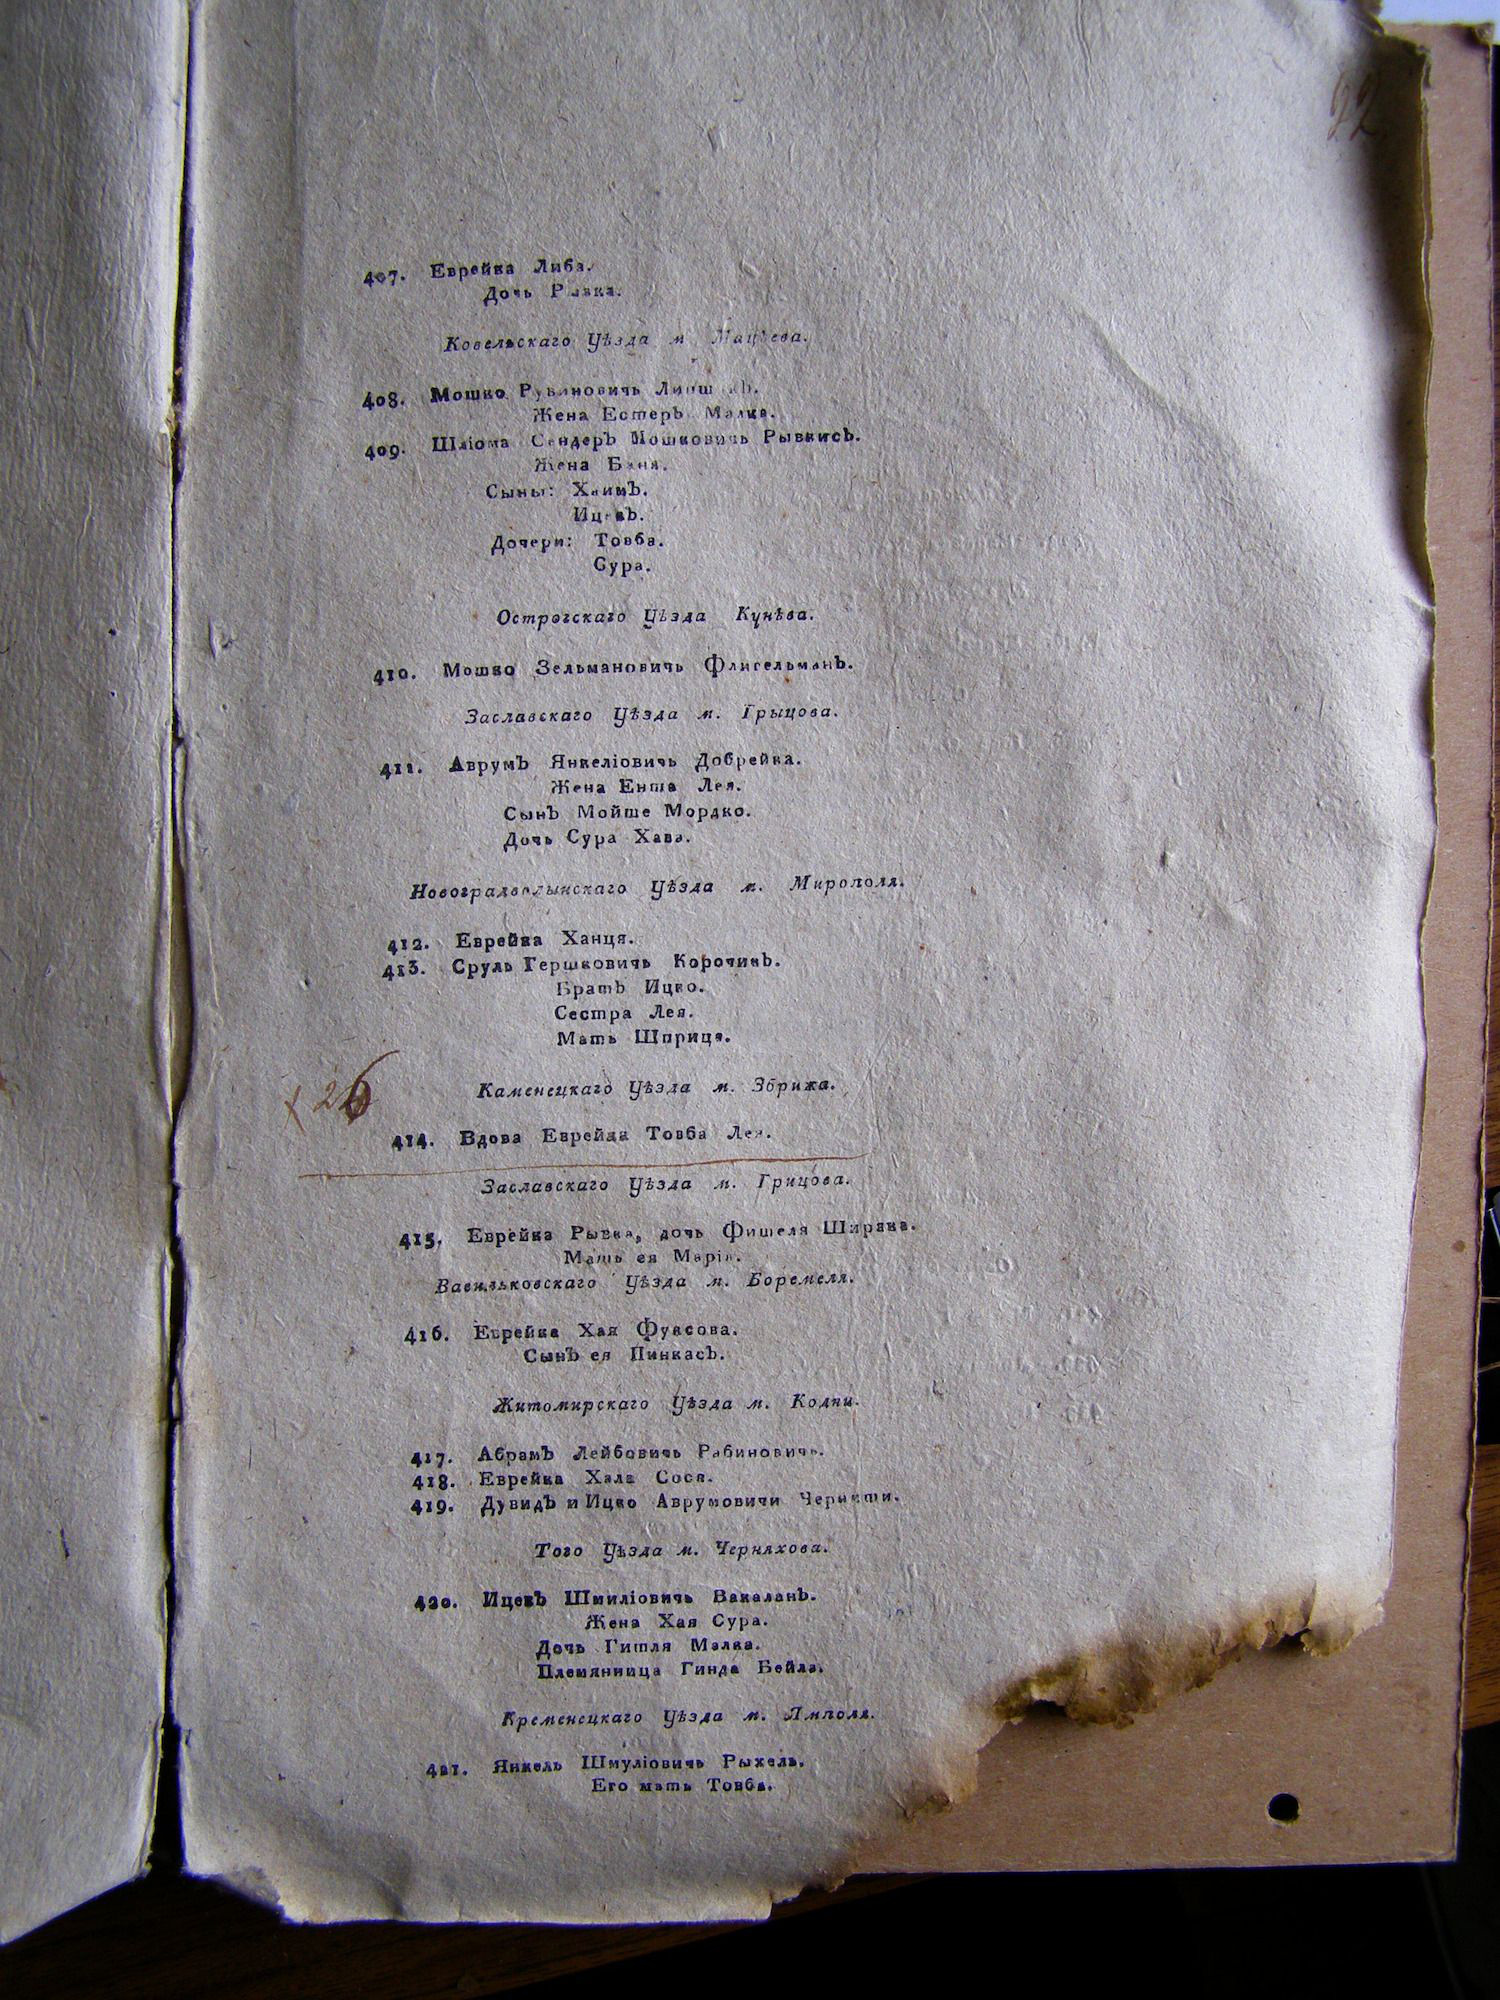 22
407. Еврейка Либа.
Дочь Рывка.
Ковельскаго Уѣзда м. Мацѣева.
408. Мошко Рувиновичь
Жена Естеръ Малка.
409. Шліома Сендеръ Мошковичь Рывкисъ.
Жена Баня.
Сыны: Хаимъ.
Ицекъ.
Дочери: Товба.
Сура.
Острогскаго Уѣзда Кунѣва.
410. Мошко Зельмановичь Флигельманъ.
Заславскаго Уѣзда м. Грыцова.
411. Аврумъ Янкеліовичь Добрейка.
Жена Ента Лея.
Сынъ Мойше Мордко.
Дочь Сура Хава.
Новоградволынскаго Уѣзда м. Мирополя.
412. Еврейка Ханця.
413. Сруль Гершковичь Корочикъ.
Братъ Ицко.
Сестра Лея.
Мать Шприця.
Каменецкаго Уѣзда м. Збрижа.
26
414. Вдова Еврейка Товба Лея.
Заславскаго Уѣзда м. Грицова.
415. Еврейка Рывка, дочь Фишеля Ширяка.
Мать ея Марія.
Васильковскаго Уѣзда м. Боремеля.
416. Еврейка Хая Фуксова.
Сынъ ея Пинкасъ.
Житомирскаго Уѣзда м. Кодни.
417. Абрамъ Лейбовичь Рабиновичь.
418. Еврейка Хала Сося.
419. Дувидъ и Ицко Аврумовичи
Того Уѣзда м. Черняхова.
420. Ицекъ Шмиліовичь Вакаланъ.
Жена Хая Сура.
Дочь Гитля Малка.
Племянница Гинда Бейла.
Кременецкаго Уѣзда м. Ямполя.
421. Янкель Шмуліовичь Рыхель.
Его мать Товба.